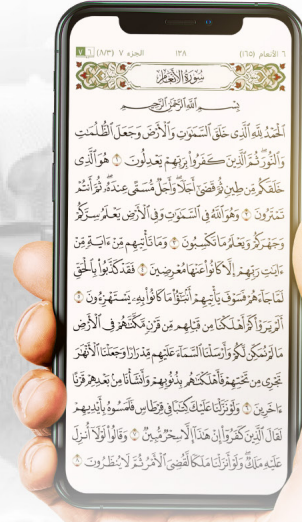 ٦ الأنعام (١٦٥) ١٢٨ الجزء ٧ (٨/٣)
سُورَةُ الأَنْعَامِ
بِسْمِ اللَّهِ الرَّحْمَٰنِ الرَّحِيمِ
الْحَمْدُ لِلَّهِ الَّذِي خَلَقَ السَّمَٰوَٰتِ وَالْأَرْضَ وَجَعَلَ الظُّلُمَٰتِ
وَالنُّورَ ثُمَّ الَّذِينَ كَفَرُوا بِرَبِّهِمْ يَعْدِلُونَ ١ هُوَ الَّذِي
خَلَقَكُم مِّن طِينٍ ثُمَّ قَضَىٰ أَجَلًا وَأَجَلٌ مُّسَمًّى عِندَهُ ثُمَّ أَنتُمْ
تَمْتَرُونَ ٢ وَهُوَ اللَّهُ فِي السَّمَٰوَٰتِ وَفِي الْأَرْضِ يَعْلَمُ سِرَّكُمْ
وَجَهْرَكُمْ وَيَعْلَمُ مَا تَكْسِبُونَ ٣ وَمَا تَأْتِيهِم مِّنْ ءَايَةٍ مِّنْ
ءَايَٰتِ رَبِّهِمْ إِلَّا كَانُوا عَنْهَا مُعْرِضِينَ ٤ فَقَدْ كَذَّبُوا بِالْحَقِّ
لَمَّا جَاءَهُمْ فَسَوْفَ يَأْتِيهِمْ أَنۢبَٰٓؤُا مَا كَانُوا بِهِ يَسْتَهْزِءُونَ ٥
أَلَمْ يَرَوْا كَمْ أَهْلَكْنَا مِن قَبْلِهِم مِّن قَرْنٍ مَّكَّنَّٰهُمْ فِي الْأَرْضِ
مَا لَمْ نُمَكِّن لَّكُمْ وَأَرْسَلْنَا السَّمَاءَ عَلَيْهِم مِّدْرَارًا وَجَعَلْنَا الْأَنْهَٰرَ
تَجْرِي مِن تَحْتِهِمْ فَأَهْلَكْنَٰهُم بِذُنُوبِهِمْ وَأَنشَأْنَا مِنۢ بَعْدِهِمْ قَرْنًا
ءَاخَرِينَ ٦ وَلَوْ نَزَّلْنَا عَلَيْكَ كِتَٰبًا فِي قِرْطَاسٍ فَلَمَسُوهُ بِأَيْدِيهِمْ
لَقَالَ الَّذِينَ كَفَرُوا إِنْ هَٰذَا إِلَّا سِحْرٌ مُّبِينٌ ٧ وَقَالُوا لَوْلَا أُنزِلَ
عَلَيْهِ مَلَكٌ وَلَوْ أَنزَلْنَا مَلَكًا لَّقُضِيَ الْأَمْرُ ثُمَّ لَا يُنظَرُونَ ٨